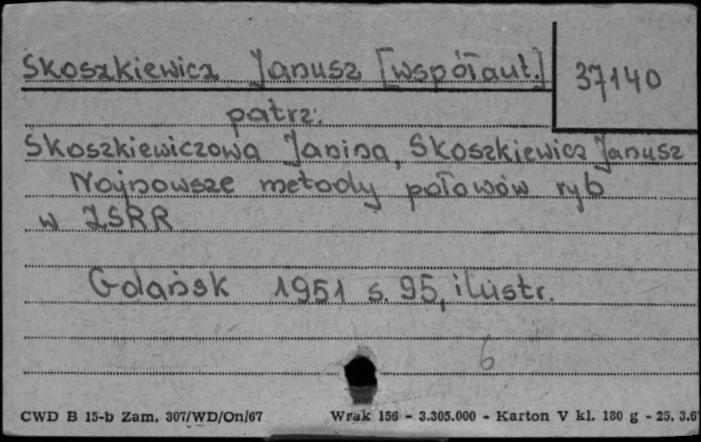 Skoszkiewicz Janusz [współaut.] 37140
patrz:
Skoszkiewiczowa Janina, Skoszkiewicz Janusz
Najnowsze metody połowów ryb
w ZSRR
Gdańsk 1951 s. 95, ilustr.
6
CWD B 15-b Zam. 307/WD/On/67 Wrak 156 - 3.305.000 - Karton V kl. 180 g - 25. 3.6